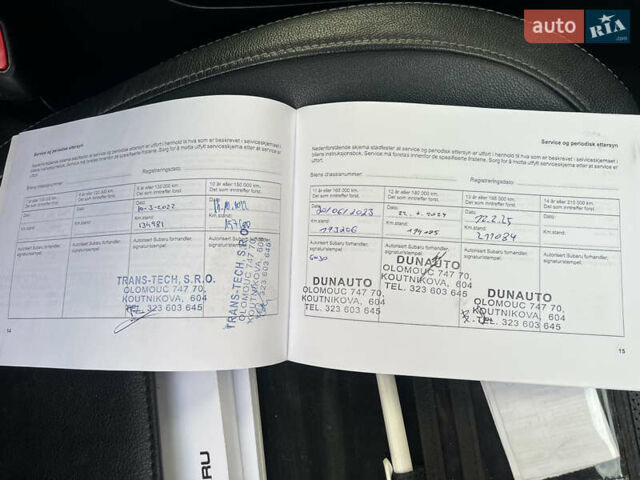 auto RIA
.com
Service og periodisk ettersyn
Nedenforstående skjema stadfester at service og periodisk ettersyn er utført i henhold til hva som er beskrevet i serviceskjemaet i
bilens instruksjonsbok. Service må foretas innenfor de spesifiserte fristene. Sørg for å motta utfylt serviceskjema etter at service er
utført.
Bilens chassisnummer:
Registreringsdato:
9 år eller 135 000 km.
Det som inntreffer først.
10 år eller 150 000 km.
Det som inntreffer først.
Dato:
10-3-2022
Km.stand:
134981
Dato:
Km.stand:
Autorisert Subaru forhandler,
signatur/stempel:
Autorisert Subaru forhandler,
signatur/stempel:
TRANS-TECH, S.R.O.
OLOMOUC 747 70,
KOUTNIKOVA, 604
TEL. 323 603 645
TRANS-TECH, S.R.O.
OLOMOUC 747 70,
KOUTNIKOVA, 604
323 603 645
14
Service og periodisk ettersyn
Nedenforstående skjema stadfester at service og periodisk ettersyn er utført i henhold til hva som er beskrevet i serviceskjemaet i
bilens instruksjonsbok. Service må foretas innenfor de spesifiserte fristene. Sørg for å motta utfylt serviceskjema etter at service er
utført.
Bilens chassisnummer:
Registreringsdato:
11 år eller 165 000 km.
Det som inntreffer først.
12 år eller 180 000 km.
Det som inntreffer først.
13 år eller 195 000 km.
Det som inntreffer først.
14 år eller 210 000 km.
Det som inntreffer først.
Dato:
20/06/2023
Km.stand:
173206
Dato:
Km.stand:
Dato:
12.2.25
Km.stand:
211084
Dato:
Km.stand:
Autorisert Subaru forhandler,
signatur/stempel:
Autorisert Subaru forhandler,
signatur/stempel:
Autorisert Subaru forhandler,
signatur/stempel:
Autorisert Subaru forhandler,
signatur/stempel:
DUNAUTO
OLOMOUC 747 70,
KOUTNIKOVA, 604
TEL. 323 603 645
DUNAUTO
OLOMOUC 747 70,
KOUTNIKOVA, 604
323 603 645
15
RU